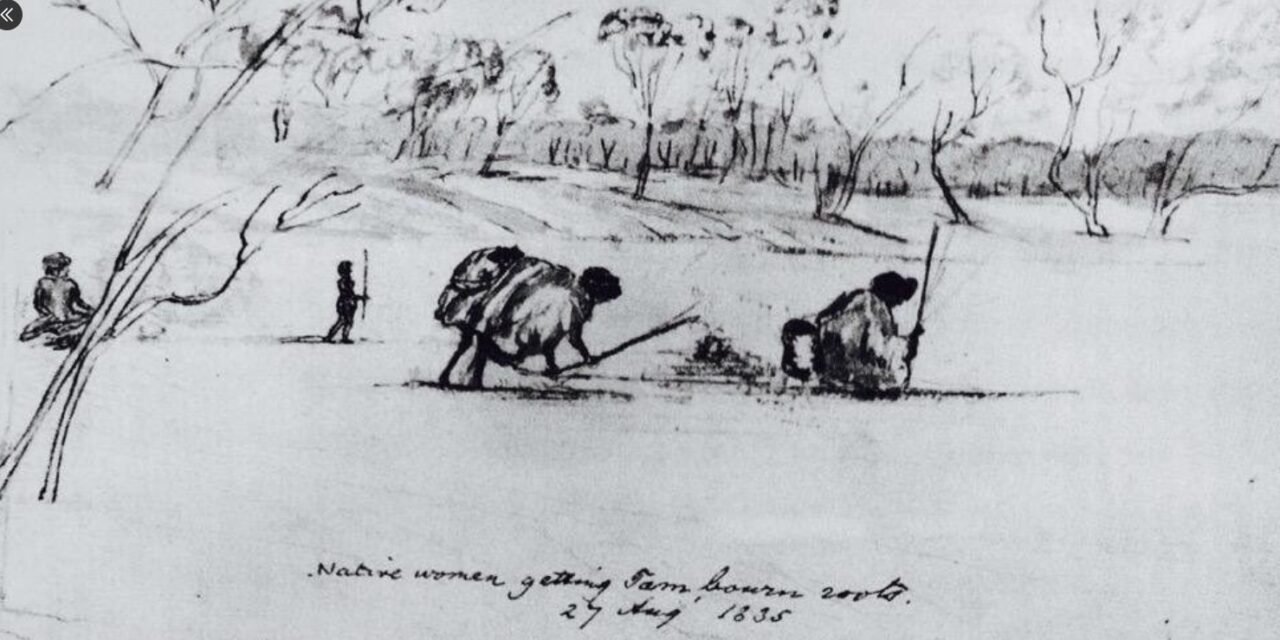 Native women getting Tam bourn roots.
27 Aug 1835